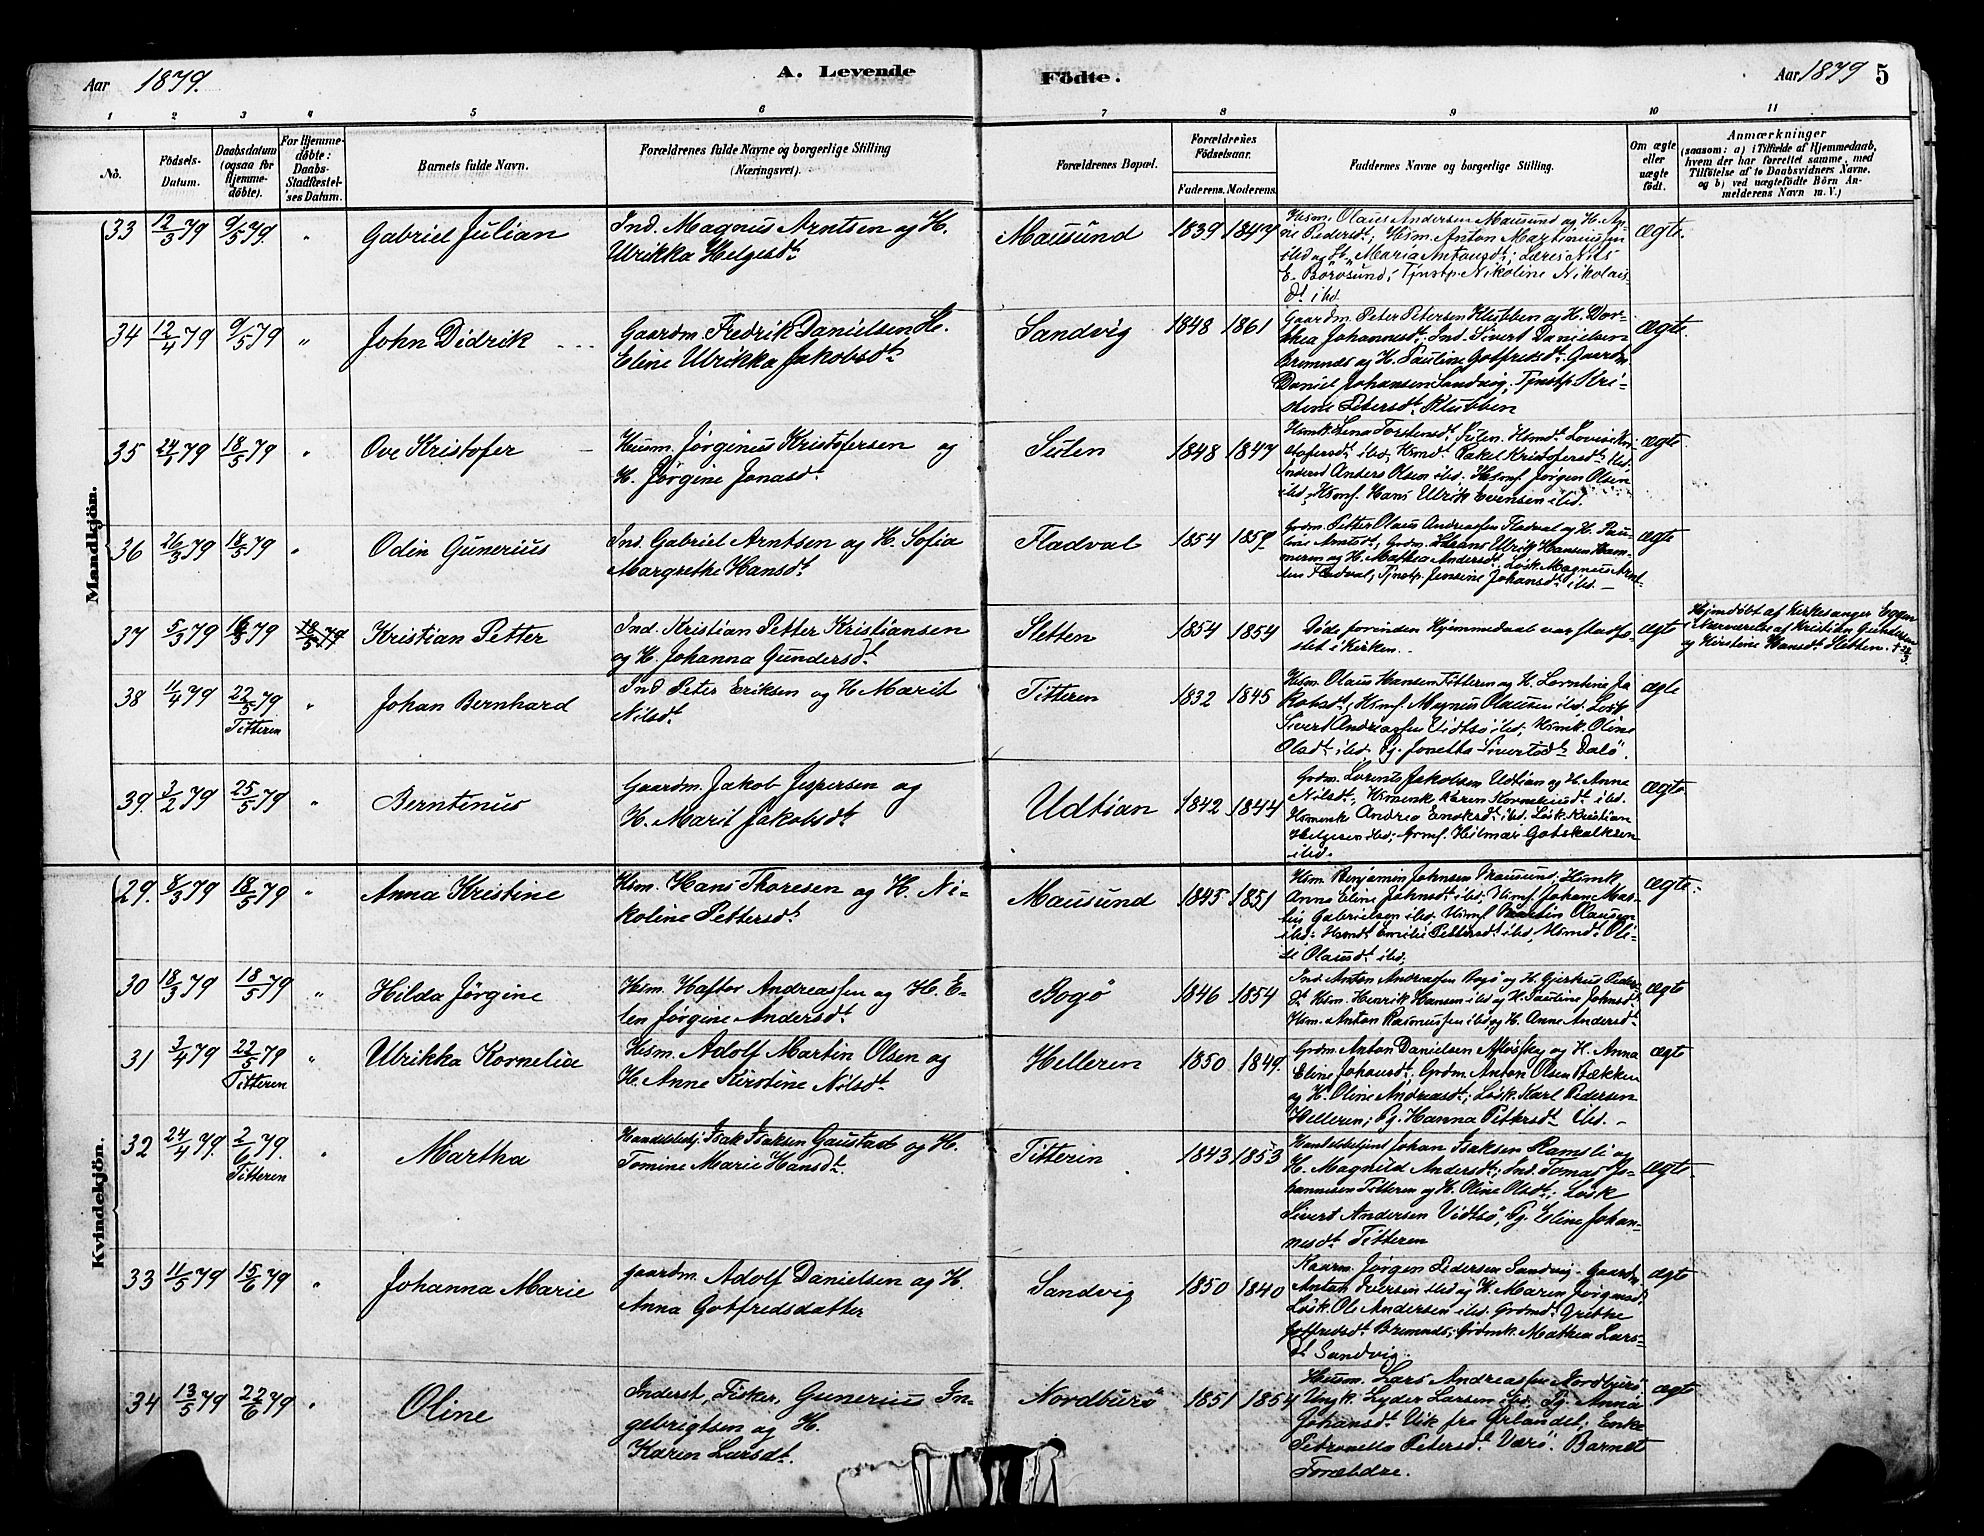 Aar 1879. A. Levende Födte. Aar 1879 5
1 2 3 4 5 6 7 8 9 10 11
No.
Födsels-
Datum.
Daabsdatum
(ogsaa for
Hjemme-
döbte).
For Hjemme-
döbte:
Daabs-
Stadfæstel-
ses Datum.
Barnets fulde Navn.
Forældrenes fulde Navne og borgerlige Stilling
(Næringsvei).
Forældrenes Bopæl.
Forældrenes
Födselsaar.
Faderens. Moderens.
Faddernes Navne og borgerlige Stilling.
Om ægte
eller
uægte
födt.
Anmærkninger
(saasom: a) i Tilfælde af Hjemmedaab,
hvem der har forrettet samme, med
Tilföielse af to Daabsvidners Navne,
og b) ved uægtefödte Börn An-
melderens Navn m. V.)
Mandkjön.
33 12/3 79 9/5 79. " Gabriel Julian
Ind. Magnus Arntsen og H.
Ulrikka Helgesdt.
Mausund 1839 1847
Hsm. Olaus Andersen Mausund og H.
Pedersdt; Hsm. Anton Martinussen
ibd og Maria Antonsdt; Læres Nils
E. Borösund; Tjnstp. Nikoline Nikolais-
dt ibd.
ægte.
34 12/4 79 9/5 79 " John Didrik
Gaardm. Fredrik Danielsen H.
Eline Ulrikka Jakobsdt.
Sandvig 1848 1861
Gaardm. Peter Petersen Klubben og H. Dor-
thea Johannesdt; Ind. Sivert Danielsen
Bremnes og H. Pauline Gotfredsdt. Gaardm.
Daniel Johansen Sandvig, Tjnstp. Kri-
stene Petersdt. Klubben
ægte.
35 24/ 79 18/5 79 " Ove Kristofer
Husm. Jørginus Kristofersen og
H. Jørgine Jonasdt.
Sulen 1848 1847
Hsmk. Lena Torstensdt. Sulen. Hsmdt. Lovise Kri-
stofersdt. ibd, Hsmdt. Kristofersdt. ibd.
Inderst Anders Olsen ibd. Hsmf. Jørgen Olsen
ibd, Hsmf. Hans Ulrik Evensen ibd.
ægte.
36 26/3 79 18/5 79 " Odin Gunerius
Ind. Gabriel Arntsen og H. Sofia
Margrethe Hansdt.
Fladval 1854 1859
Grdm. Petter Olaus Andreassen Fladval og H. Pau-
line Arntsdt; Grdm. Hans Ulrik Hansen Ham-
meren og H. Mathea Andersdt. Løsk. Magnus Arnt-
sen Fladval, Tjnstp. Jensine Johansdt. ibd. —
ægte
37 5/3 79 16/3 79 18/5 79 Kristian Petter
Ind. Kristian Petter Kristiansen
og H. Johanna Gundersdt.
Sletten 1854 1854
Døde forinden Hjemmedaab var stadfæ-
stet i Kirken.
ægte
Hjemdøbt af Kirkesanger Eggen
i Nærværelse af Kristian Gundersen
og Kirstine Hansdt. Sletten.
38 11/4 79 22/5 79
Titteren
" Johan Bernhard
Ind Peter Eriksen og H Marit
Nilsdt.
Titteren 1832 1845
Hsm. Olaus Hansen Titteren og H. Lorntine Ja-
kobsdt, Hsmf. Magnus Olaussen ibd. Løsk
Sivert Andreassen Vidtsø ibd, Hsmk. Oline
Olsdt ibd. Pg. Jonetta Sivertsdt. Dalø.
ægte
39. 3/2 79 25/5 79 " Berntinus
Gaardm. Jakob Jespersen og
H. Marit Jakobsdt.
Udtian 1842 1844
Grdm. Lorents Jakobsen Udtian og H. Anna
Nilsdt; Hsmenk. Karen Korneliusdt ibd.
Hsmenke Andrea Enoksdt. ibd. Løsk Kristian
Helgesen ibd; Grmf. Hilmar Gotskalksen
ibd.
ægte
Kvindekjön.
29. 8/3 79 18/5 79 " Anna Kristine
Hsm. Hans Thoresen og H. Ni-
koline Pettersdt.
Mausund 1845 1851
Hsm. Benjamin Johnsen Mausund, Hsmk
Anna Eline Johnsdt. ibd, Hsmf. Johan Mar-
tin Gabrielsen ibd. Hsmf. Martin Olausen
ibd. Hsmdt. Emilie Pettersdt. ibd, Hsmdt. Oli-
de Olausdt ibd.
ægte.
30 18/3 79 18/5 79 " Hilda Jørgine
Hsm. Haftor Andreassen og H. E-
len Jørgine Andersdt.
Bogø 1846 1854
Ind. Anton Andreassen Bogø og H.
Hsm. Henrik Hansen ibd og H. Pauline Johnsdt.
Hsm. Anton Rasmussen ibd og H. Anne Andersdt.
ægte
31 3/4 79 22/5 79
Titteren
" Ulrikka Kornelia
Hsm. Adolf Martin Olsen og
H. Anne Kirstine Nilsdt.
Helleren 1850 1849.
Grdm. Anton Danielsen og H. Anna
Eline Johansdt; Grdm. Anton Olsen Bækken
og H. Oline Andreasdt; Løsk. Karl Pedersen
Helleren; Pg. Hanna Pettersdt. ibd. —
ægte
32 24/4 79. 2/6 79.
Titteren
" Martha
Handelsbetj. Isak Isaksen Gaustad og H.
Tomine Marie Hansdt.
Titterin 1843 1853
Handelsbetjent Johan Isaksen Ramsli og
H. Magnild Andersdt; Ind. Tomas Jo-
hannesen Titteren og H. Oline Olsdt; Løsk
Sivert Andersen Vidtsø, Pg. Eline Johan-
nesdt. Titteren
ægte
33 11/5 79 15/6 79 " Johanna Marie
Gaardm. Adolf Danielsen og H.
Anna Gotfredsdatter
Sandvig 1850 1840
Kaarm. Jørgen Pedersen Sandvig. Gaardm.
Antan Iversen ibd og H. Maren Jørgensdt.
Løsk. Ole Andersen ibd. Grdmdt. Grethe
Gotfredsdt. Bremnes; Grdmk. Mathea Lars-
dt. Sandvig.
ægte
34 13/5 79 22/6 79 " Oline
Inderst, Fisker, Gunerius In-
gebrigtsen og H.
Karen Larsdt.
Nordburø 1851 1854
Husm. Lars Andreassen Nordburø
Ungk. Lyder Larsen ibd. Pg. Anna
Johansdt. Vik fra Ørlandet; Enke
Petronella Petersdt. Værø. Barnets
Forældre.
ægte